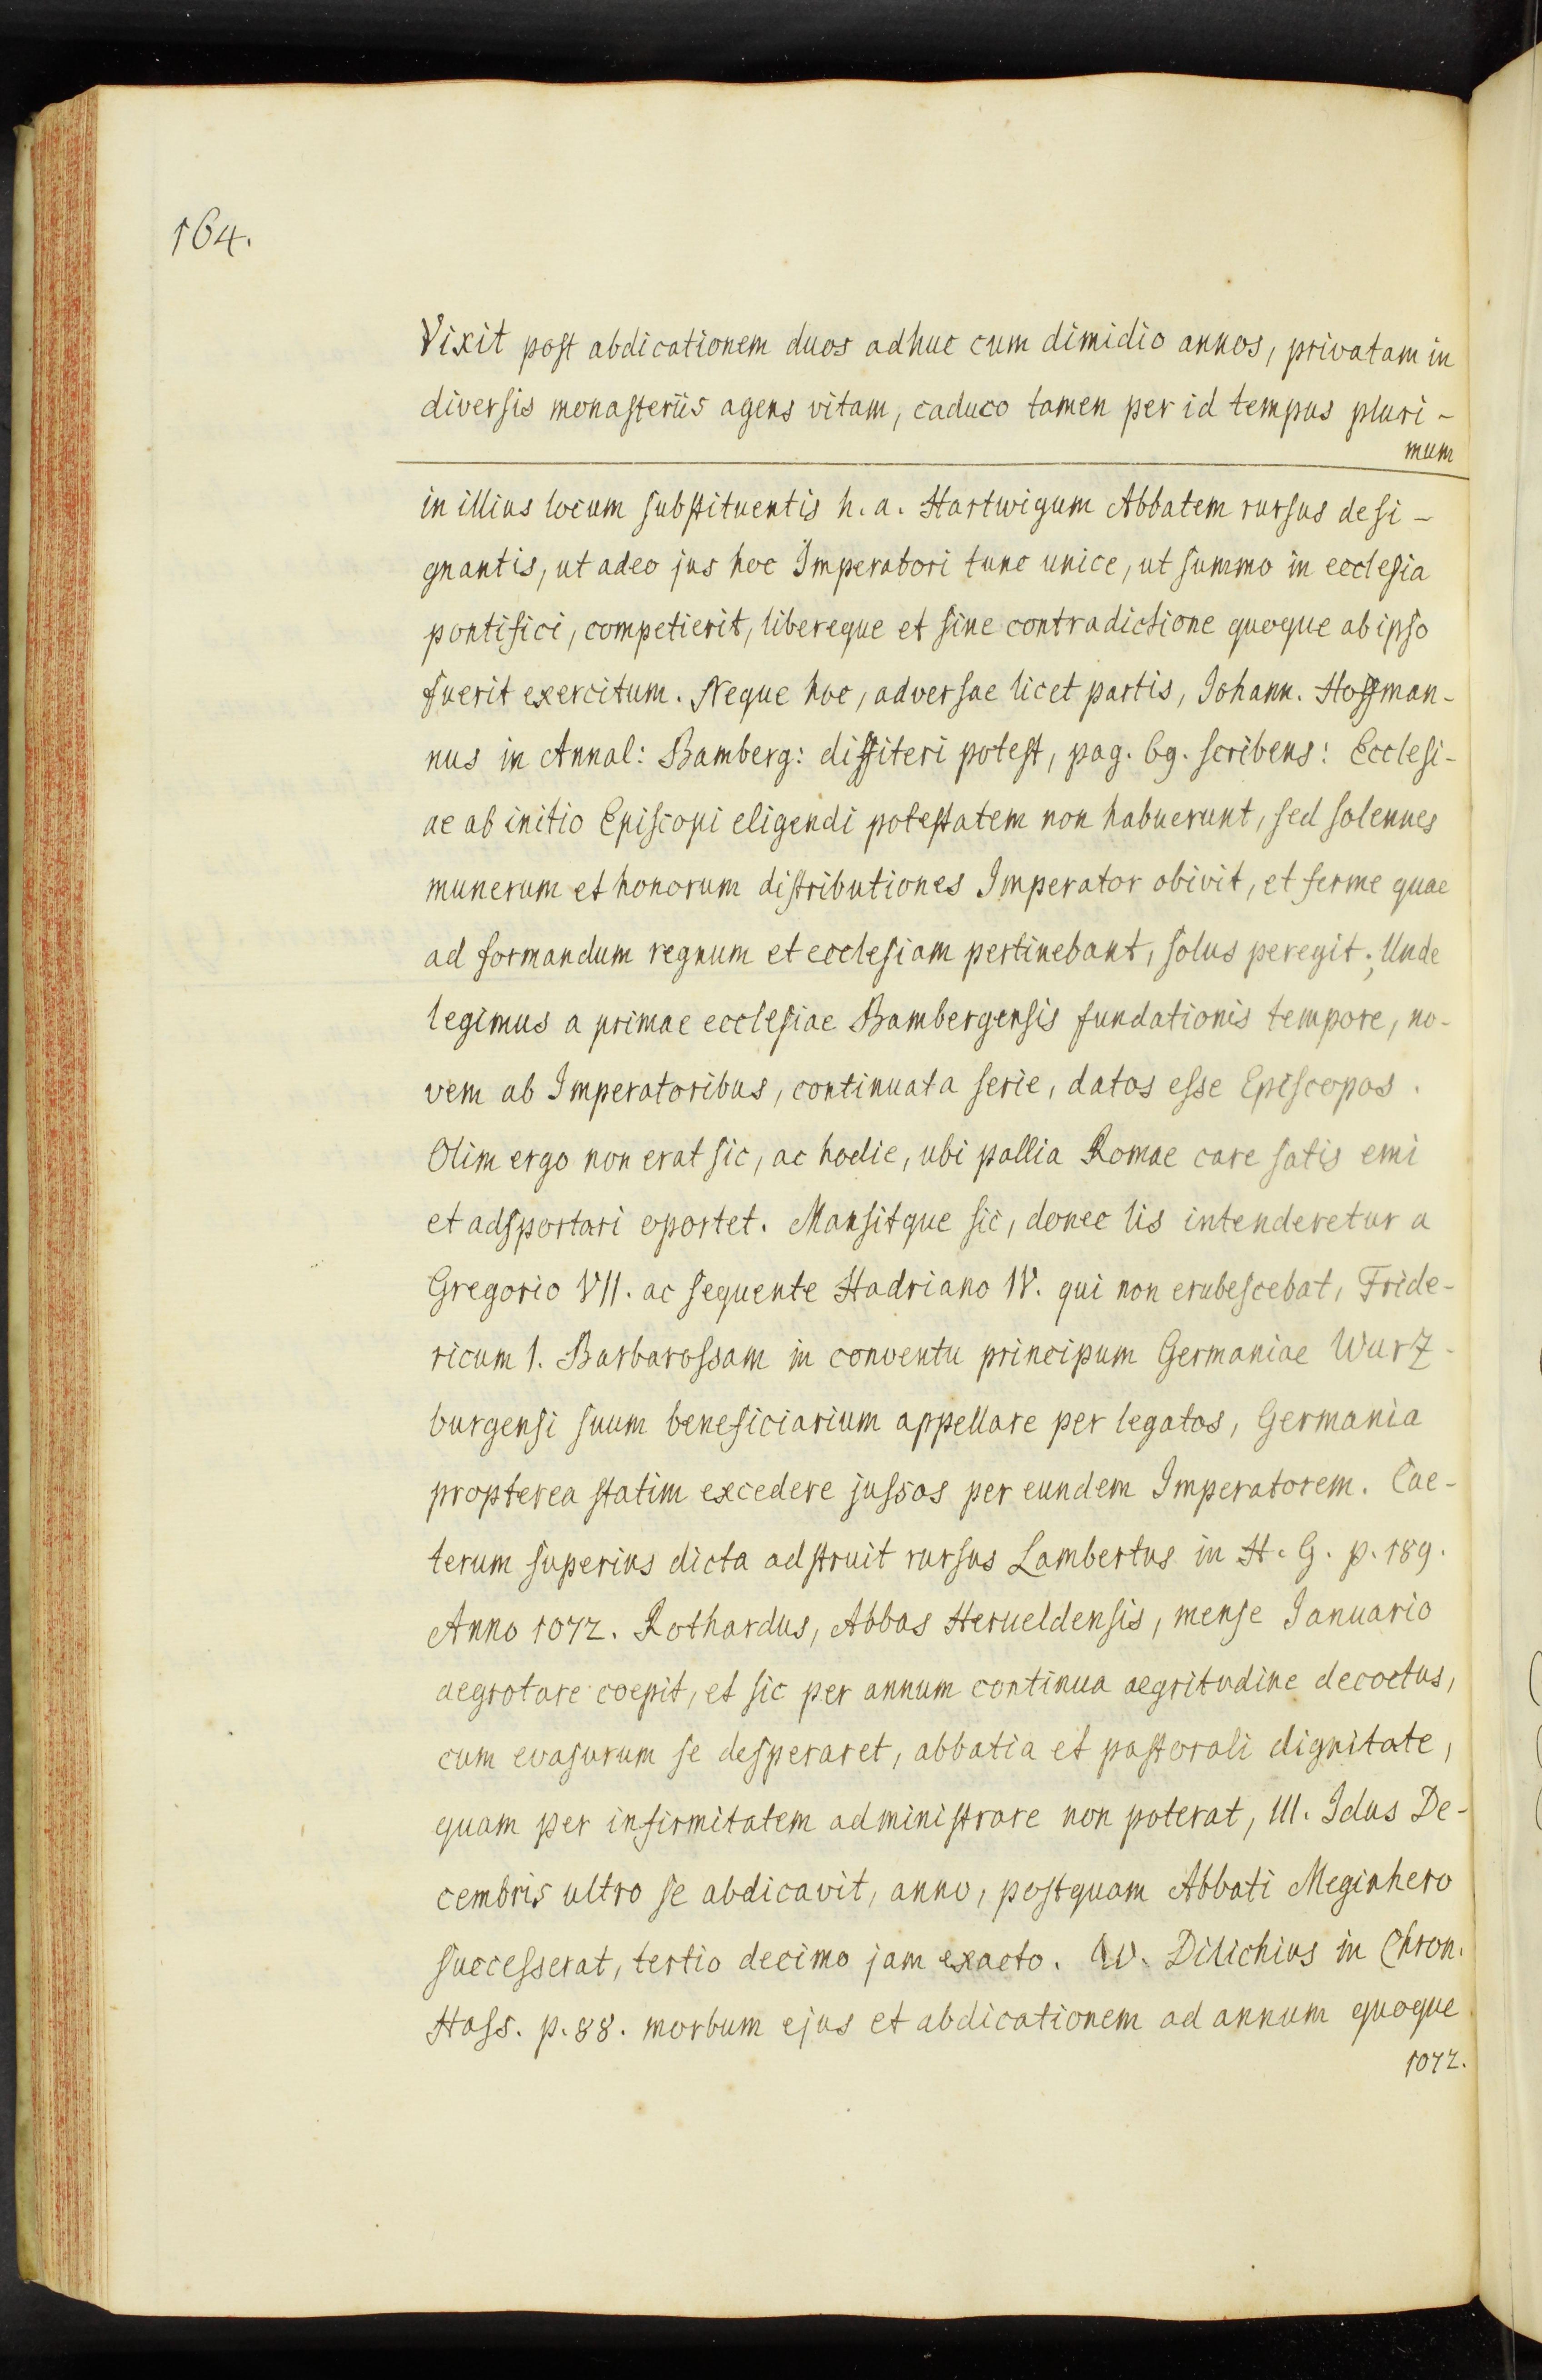 164.
Vixit post abdicationem duos adhuc cum dimidio annos, privatam in
diversis monasteriis agens vitam, caduco tamen per id tempus pluri-
mum
in illius locum substituentis h. a. Hartwigum Abbatem rursus desi-
gnantis, ut adeo jus hoc Imperatori tunc unice, ut summo in ecclesia
pontifici, competierit, libereque et sine contradictione quoque ab ipso
fuerit exercitum. Neque hoc, adversae licet partis, Johann. Hoffman-
nus in Annal: Bamberg: diffiteri potest, pag. 69. scribens: Ecclesi-
ae ab initio Episcopi eligendi potestatem non habuerunt, sed solennes
munerum et honorum distributiones Imperator obivit, et ferme quae
ad formandum regnum et ecclesiam pertinebant, solus peregit; Unde
legimus a primae ecclesiae Bambergensis fundationis tempore, no-
vem ab Imperatoribus, continuata serie, datos esse Episcopos.
Olim ergo non erat sic, ac hodie, ubi pallia Romae care satis emi
et adsportari oportet. Mansitque sic, donec lis intenderetur a
Gregorio VII. ac sequente Hadriano IV. qui non erubescebat, Fride-
ricum I. Barbarossam in conventu principum Germaniae Wurz-
burgensi suum beneficiarium appellare per legatos, Germania
propterea statim excedere jussos per eundem Imperatorem. Cae-
terum superius dicta adstruit rursus Lambertus in H. G. p. 189.
Anno 1072. Rothardus, Abbas Herueldensis, mense Ianuario
aegrotare coepit, et sic per annum continua aegritudine decoctus,
cum evasurum se desperaret, abbatia et pastorali dignitate,
quam per infirmitatem administrare non poterat, III. Idus De-
cembris ultro se abdicavit, anno, postquam Abbati Meginhero
successerat, tertio decimo jam exacto. W. Dilichius in Chron.
Hass. p. 88. morbum ejus et abdicationem ad annum quoque
1072.